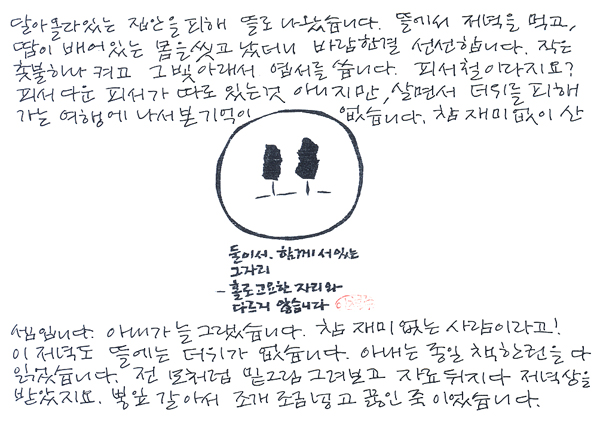 달아올라있는 집안을 피해 뜰로 나왔습니다. 뜰에서 저녁을 먹고,
땀이 배어있는 몸을 씻고 났더니 바람한결 선선합니다. 작은
촛불하나 켜고 그 빛 아래서 엽서를 씁니다. 피서철이라지요?
피서다운 피서가 따로 있는것 아니지만, 살면서 더위를 피해
가는 여행에 나서본 기억이 없습니다. 참 재미없이 산
둘이서. 함께 서있는
그자리
- 홀로 고요한 자리와
다르지 않습니다
셈입니다. 아내가 늘 그랬습니다. 참 재미 없는 사람이라고!
이 저녁도 뜰에는 더위가 없습니다. 아내는 종일 책한권을 다
읽었습니다. 전 모처럼 밑그림 그려보고 자료뒤지다 저녁상을
받았지요. 뽕잎 갈아서 조개 조금 넣고 끓인 죽 이었습니다.